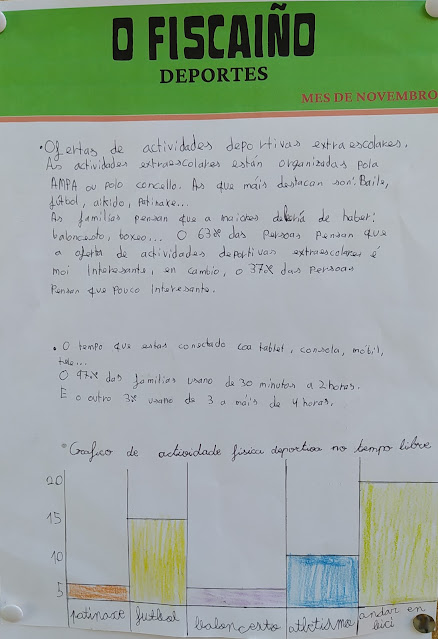 O FISCAIÑO
DEPORTES
MES DE NOVEMBRO
• Ofertas de actividades deportivas extraescolares.
As actividades extraescolares están organizadas pola
AMPA ou polo concello. As que máis destacan son: Baile,
fútbol, aikido, Patinaxe...
As familias pensan que a maiores debería de haber:
baloncesto, boxeo... O 63% das Persoas Pensan que
a oferta de actividades deportivas extraescolares é
moi Interesante, en cambio, o 37% das Persoas
Pensan que Pouco Interesante.
• O tempo que estas conectado coa tablet, consola, móbil,
tele...
O 97% das familias usano de 30 minutos a 2 horas.
E o outro 3% usano de 3 a máis de 4 horas.
• Grafico de actividade fisica deportiva no tempo libre
20
15
10
5
patinaxe
futbol
baloncesto
atletismo
andar en
bici